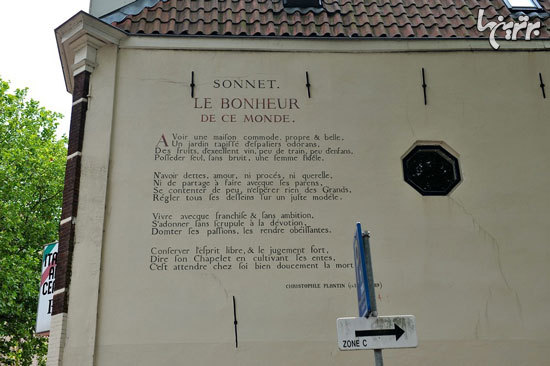 SONNET.
LE BONHEUR
DE CE MONDE.
AVoir une maiſon commode, propre & belle,
Un jardin tapiſſé d'eſpaliers odorans,
Des fruits, d'excellent vin, peu de train, peu d'enfans,
Poſſeder ſeul, ſans bruit, une femme fidéle.
N'avoir dettes, amour, ni procés, ni querelle,
Ni de partage à faire avecque ſes parens,
Se contenter de peu, n'eſpérer rien des Grands,
Régler tous ſes deſſeins ſur un juſte modéle.
Vivre avecque franchiſe & ſans ambition,
S'adonner ſans ſcrupule à la dévotion,
Domter ſes paſſions, les rendre obéiſſantes.
Conſerver l'eſprit libre, & le jugement fort,
Dire ſon Chapelet en cultivant ſes entes,
C'eſt attendre chez ſoi bien doucement la mort
CHRISTOPHE PLANTIN
ZONE C